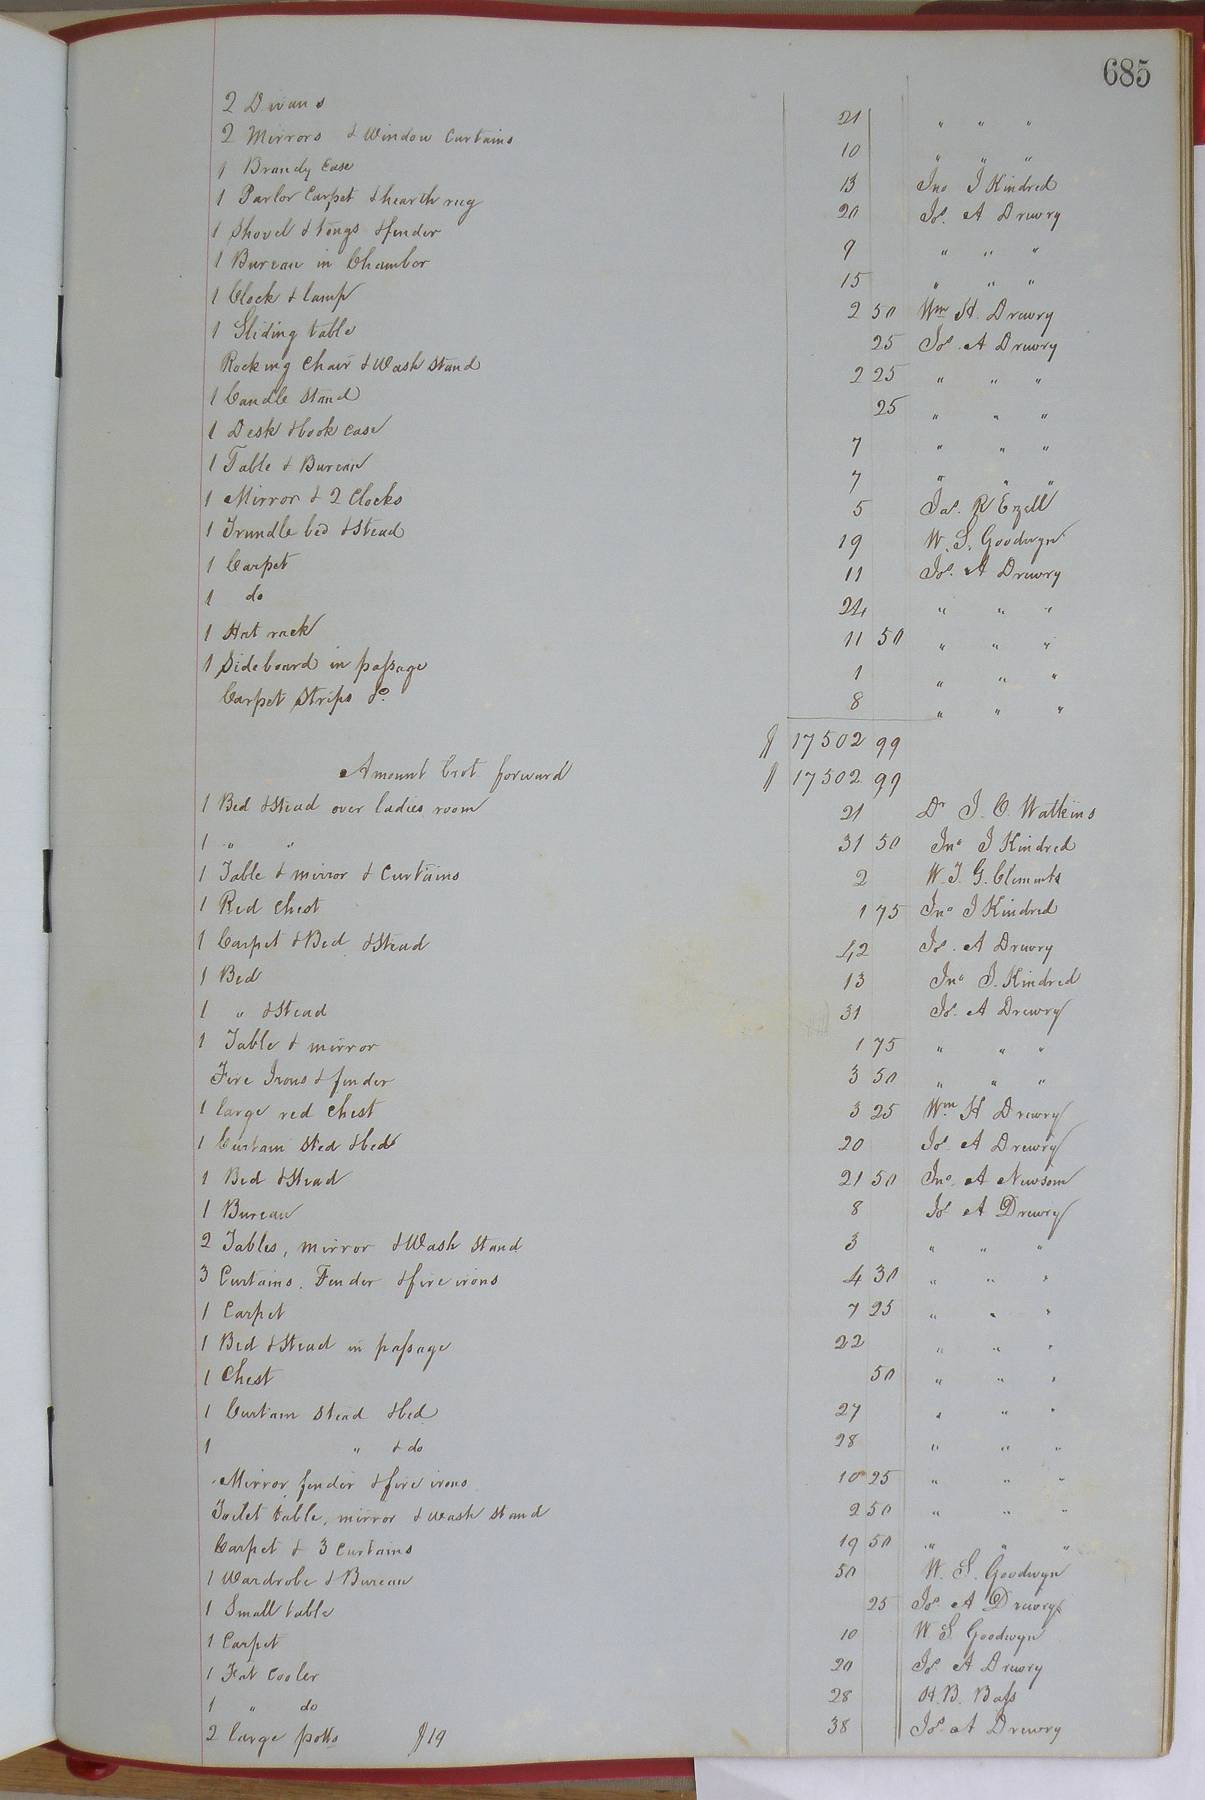 685
2 Divans 21 " " "
2 Mirrors & Window Curtains 10 " " "
1 Brandy Case 13 Jno J Kindred
1 Parlor Carpet & hearth rug 20 Jos. A Drewry
1 Shovel & tongs & fender 9 " " "
1 Bureau in Chamber 15 " " "
1 Clock & lamp 2 50 Wm H. Drewry
1 Sliding table 25 Jos. A Drewry
Rocking Chair & Wash stand 2 25 " " "
1 Candle stand 25 " " "
1 Desk & book case 7 " " "
1 Table & Bureau 7 " " "
1 Mirror & 2 Clocks 5 Jas. R Ezell
1 Trundle bed & stead 19 W. S. Goodwyn
1 Carpet 11 Jos. A Drewry
1 do 24 " " "
1 Hat rack 11 50 " " "
1 Sideboard in passage 1 " " "
Carpet Strips do. 8 " " "
$ 17502 99
Amount brot forward $ 17502 99
1 Bed & Stead over ladies room 21 Dr J. C. Watkins
1 " " 31 50 Jno J Kindred
1 Table & mirror & Curtains 2 W. J. G. Clements
1 Red Chest 1 75 Jno J Kindred
1 Carpet & Bed & Stead 42 Jos. A Drewry
1 Bed 13 Jno J. Kindred
1 " & Stead 31 Jos. A Drewry
1 Table & mirror 1 75 " " "
Fire Irons & fender 3 50 " " "
1 large red chest 3 25 Wm H Drewry
1 Curtain Sted & bed 20 Jos A Drewry
1 Bed & Stead 21 50 Jno. A Newsom
1 Bureau 8 Jos A Drewry
2 Tables, mirror & Wash Stand 3 " " "
3 Curtains. Fender & fire irons 4 30 " " "
1 Carpet 7 25 " " "
1 Bed & Stead in passage 22 " " "
1 Chest 50 " " "
1 Curtain Stead & bed 27 " " "
1 " & do 28 " " "
Mirror fender & fire irons 10 25 " " "
Toilet table, mirror & wash stand 2 50 " " "
Carpet & 3 Curtains 19 50 " " "
1 Wardrobe & Bureau 50 W. S. Goodwyn
1 Small table 25 Jos A Drewry
1 Carpet 10 W S. Goodwyn
1 Fat Cooler 20 Jos A Drewry
1 " do 28 H. B. Bass
2 large potts $19 38 Jos. A Drewry